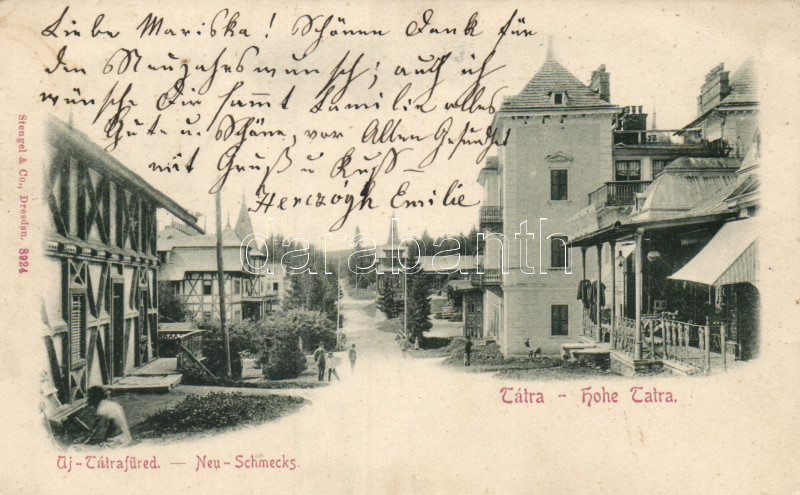 Liebe Mariska! Schönen Dank für
den Neujahrswunsch; auch ich
wünsche Dir sammt Familie alles
Gute u. Schöne, vor Allen Gesundheit
mit Gruß u Kuss —
Herczógh Emilie
Stengel & Co., Dresden. 8924
darabanth
Tátra - Hohe Tatra.
Uj-Tátrafüred. — Neu-Schmecks.